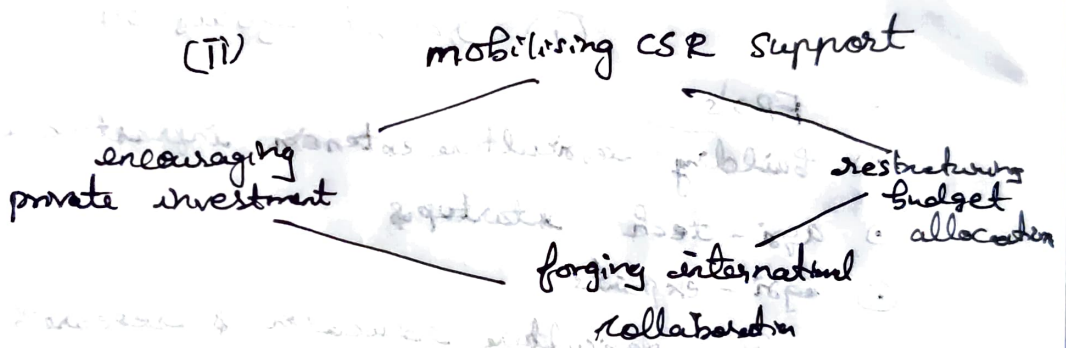 (II) mobilising CSR support
encouraging
private investment
restructuring
budget
allocation
forging international
collaboration